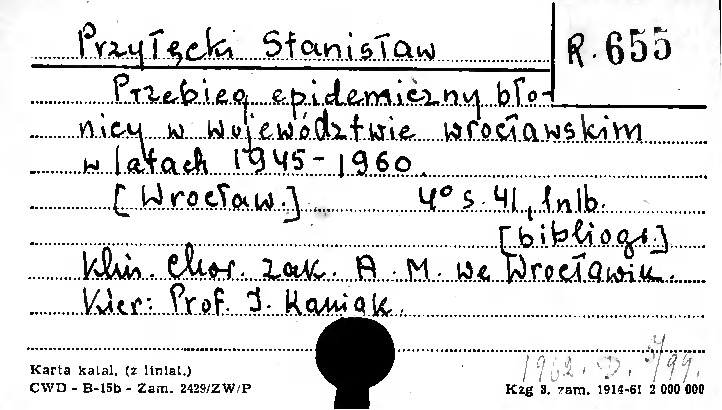 Przyłęcki Stanisław
R. 655
Przebieg epidemiczny bło-
nicy w województwie wrocławskim
w latach 1945-1960.
[Wrocław.] 4° s. 41, 1 nlb.
[bibliogr.]
Klin. Chor. zak. A. M. we Wrocławiu.
Kier: Prof. J. Kaniak.
1962. D. 4/99.
Karta katal. (z liniat.)
CWD - B-15b - Zam. 2429/ZW/P
Kzg 3. zam. 1914-61 2 000 000